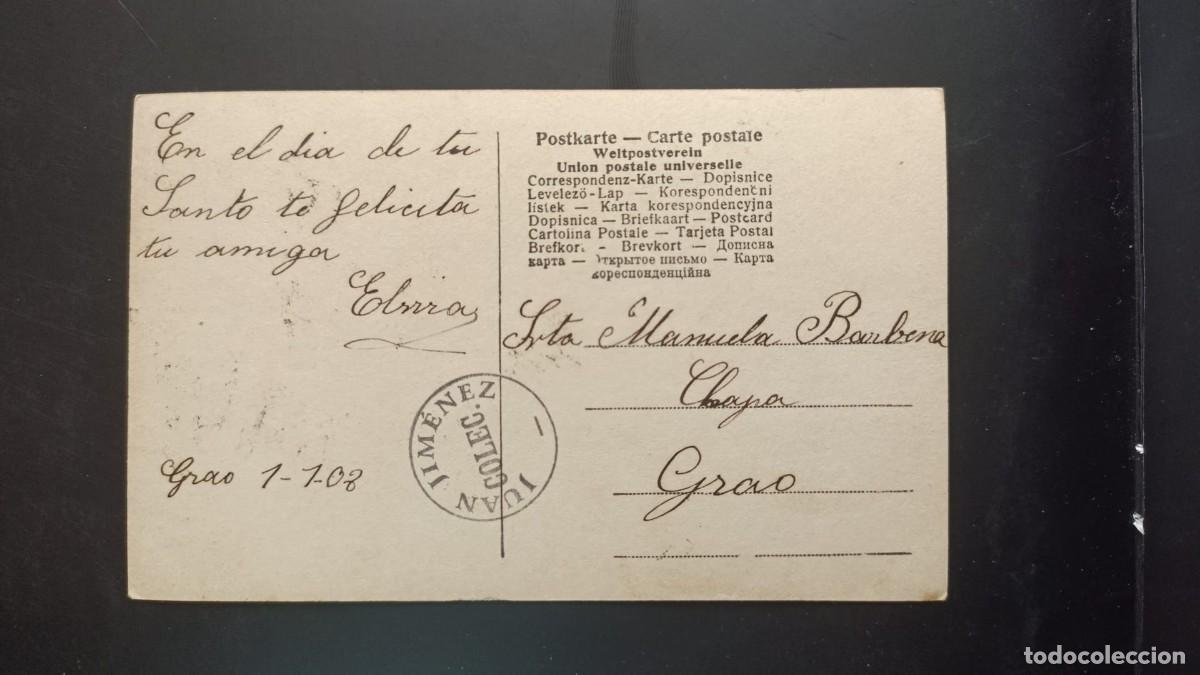 En el dia de tu
Santo te felicita
tu amiga
Elvira
Grao 1-1-08
JUAN JIMÉNEZ
COLEC.
Postkarte — Carte postale
Weltpostverein
Union postale universelle
Correspondenz-Karte — Dopisnice
Levelező-Lap — Korespondenčni
lístek — Karta korespondencyjna
Dopisnica — Briefkaart — Postcard
Cartolina Postale — Tarjeta Postal
Brefkor. - Brevkort — Дописна
карта — ткрытое письмо — Карта
кореспонденційна
Srta Manuela Barbena
Chapa
Grao
todocoleccion